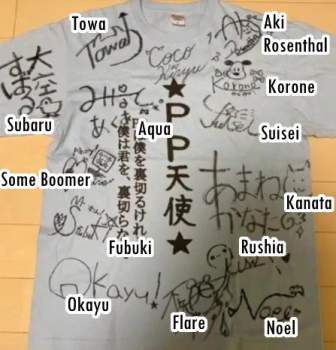 Towa
Towa
Coco
Kiryu
Aki
Rosenthal
大空
すばる
Subaru
Korone
Korone
みなと
あくあ
Aqua
Suisei
Suisei
★PP天使★
僕は君を裏切るけれど
君は僕を、裏切らない
Some Boomer
Fubuki
あまね
かなた
Kanata
Rushia
Okayu!
Okayu
Flare
Noel
Noel